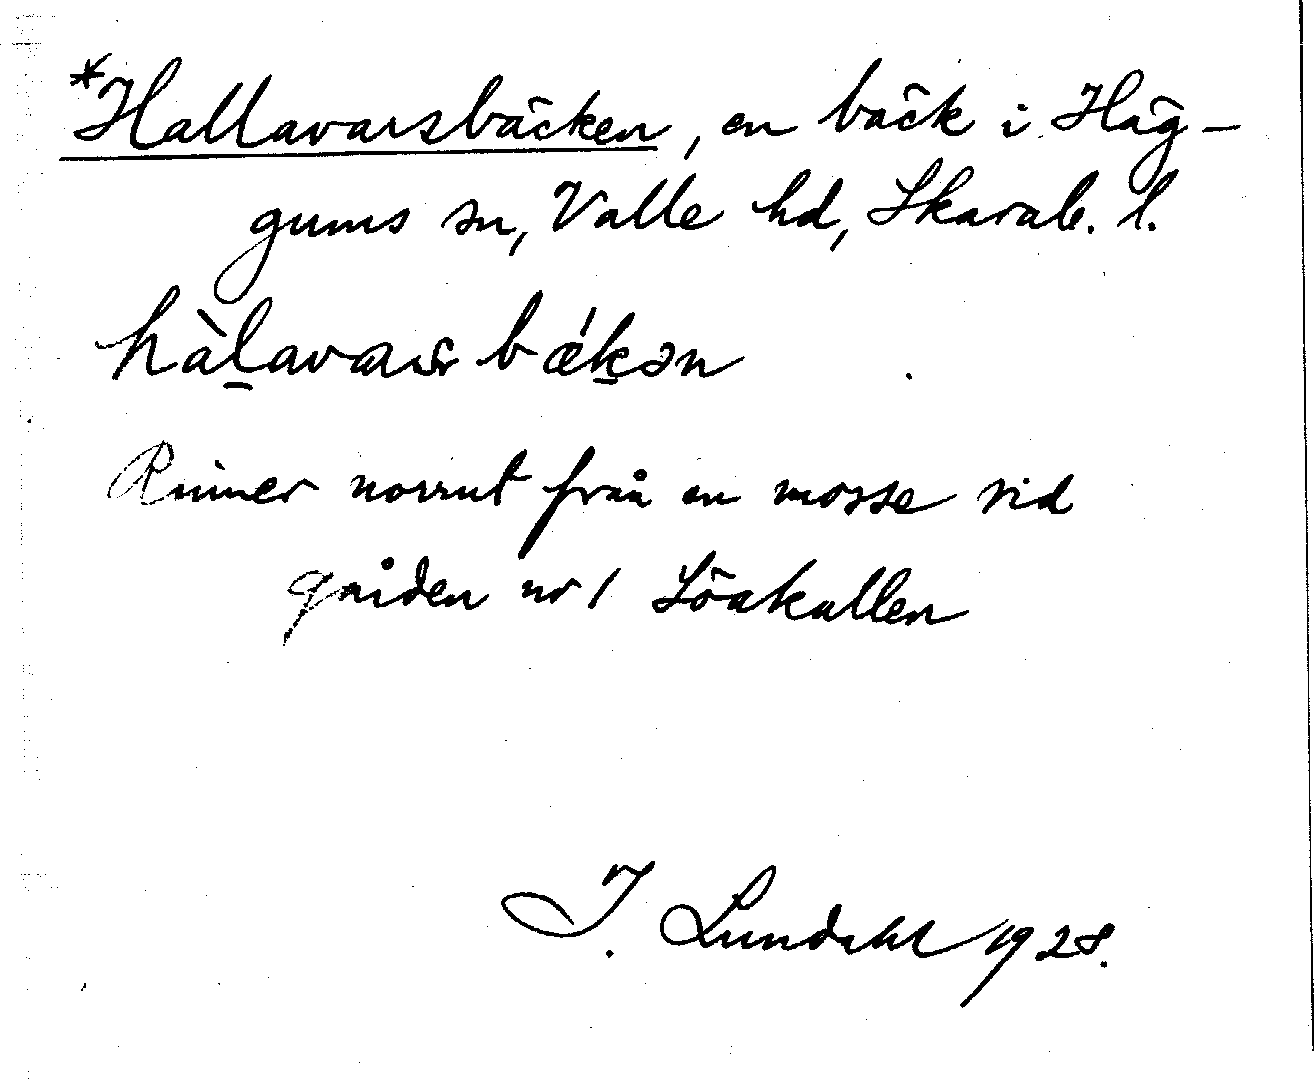 *Hallavarsbäcken, en bäck i Häg-
gums sn, Valle hd, Skarab. l.
Rinner norrut från en mosse vid
gården nr 1 Löakullen
I. Lundahl 1928.